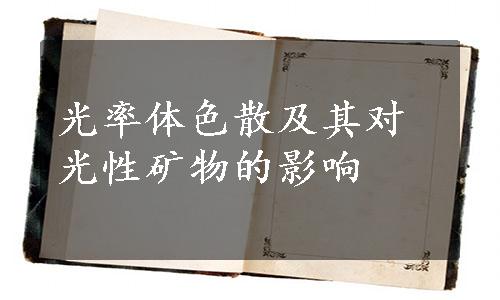 光率体色散及其对
光性矿物的影响